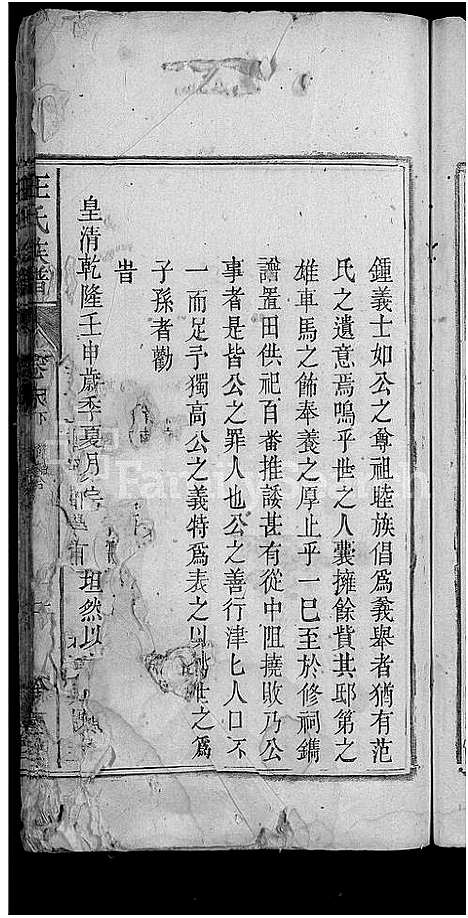 鍾義士如公之尊祖睦族倡爲義舉者猶有范
氏之遺意焉嗚乎世之人囊擁餘貲其邸第之
雄車馬之飾奉養之厚止乎一巳至於修祠鐫
譜置田供祀百番推諉甚有從中阻撓敗乃公
事者是皆公之罪人也公之善行津匕人口不
一而足予獨高公之義特爲表之以 世之爲
子孫者勸
旹
皇清乾隆壬申歲季夏月 坦然以
王氏族譜
FamilySearch